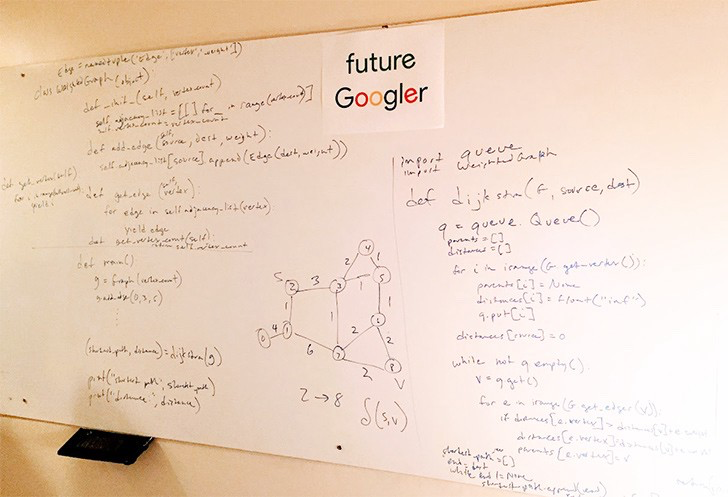 Edge = namedtuple('Edge', ['vertex', 'weight'])
class WeightedGraph(object):
def _init_(self, vertex_count)
self.adjacency_list = [[] for _ in range(vertex_count)]
self.vertex_count = vertex_count
def add_edge(self, source, dest, weight):
self.adjacency_list[source].append(Edge(dest, weight))
def get_vertex(self)
for i in
yield i
def get_edge(self, vertex):
for edge in self.adjacency_list(vertex)
yield edge
def get_vertex_count(self):
return self.vertex_count
def main()
g = Graph(vertex_count
g.add_edge(0,
(shortest_path, distance) = dijkstra(g)
print("shortest path", shortest_path)
print("distance", distance)
future
Googler
S
V
0 4 1
1 1 2
2 3 3
3 2 4
4 1 5
3 1 5
3 1 7
5 1
1 6 7
7 2
7 2 8
2 8
2 → 8
δ(s,v)
import queue
import WeightedGraph
def dijkstra(G, source, dest)
q = queue.Queue()
parents = []
distances = []
for i in irange(G.getvertex()):
parents[i] = None
distances[i] = float("inf")
q.put[i]
distances[source] = 0
while not q.empty().
v = q.get()
for e in irange(G.get_edges(v)):
if distances[e.vertex] > distance[v] + e.
distances[e.vertex] = distance[v] + e.
parents[e.vertex] = v
shortest_path = []
end = dest
while end != None
shortest_path.append(end)